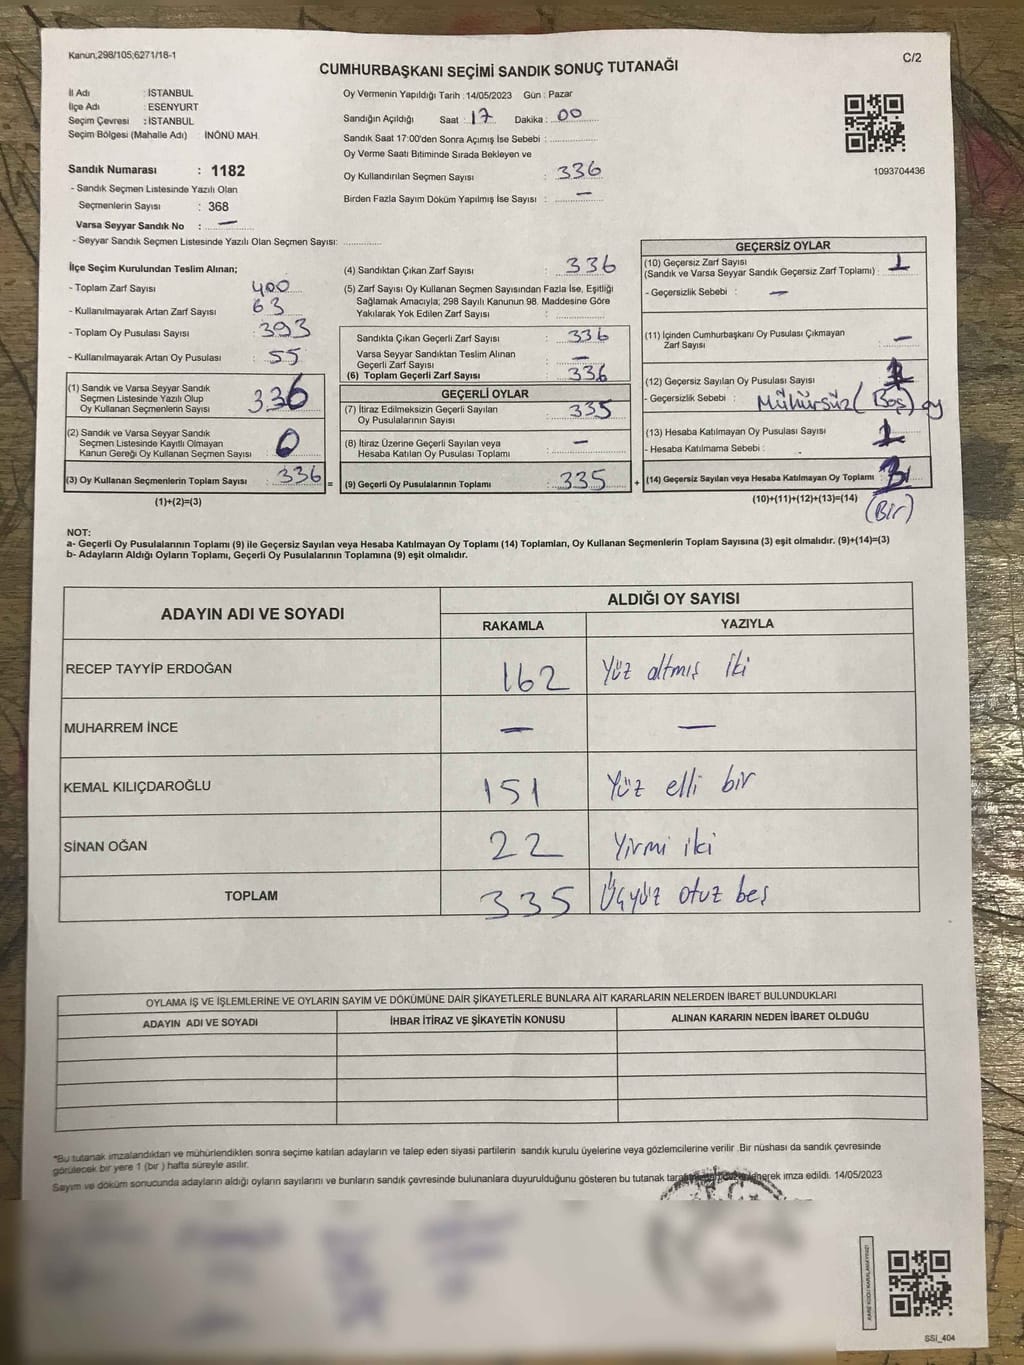 Kanun;298/105;6271/18-1
C/2
CUMHURBAŞKANI SEÇİMİ SANDIK SONUÇ TUTANAĞI
İl Adı : İSTANBUL
İlçe Adı : ESENYURT
Seçim Çevresi : İSTANBUL
Seçim Bölgesi (Mahalle Adı) : İNÖNÜ MAH.
Sandık Numarası : 1182
- Sandık Seçmen Listesinde Yazılı Olan
Seçmenlerin Sayısı : 368
Varsa Seyyar Sandık No : —
- Seyyar Sandık Seçmen Listesinde Yazılı Olan Seçmen Sayısı: ............
Oy Vermenin Yapıldığı Tarih : 14/05/2023 Gün : Pazar
Sandığın Açıldığı Saat : 17 Dakika : 00
Sandık Saat 17:00'den Sonra Açımış İse Sebebi : ............
Oy Verme Saati Bitiminde Sırada Bekleyen ve
Oy Kullandırılan Seçmen Sayısı : 336
Birden Fazla Sayım Döküm Yapılmış İse Sayısı : —
1093704436
İlçe Seçim Kurulundan Teslim Alınan;
- Toplam Zarf Sayısı : 400
- Kullanılmayarak Artan Zarf Sayısı : 63
- Toplam Oy Pusulası Sayısı : 393
- Kullanılmayarak Artan Oy Pusulası : 55
(1) Sandık ve Varsa Seyyar Sandık
Seçmen Listesinde Yazılı Olup
Oy Kullanan Seçmenlerin Sayısı : 336
(2) Sandık ve Varsa Seyyar Sandık
Seçmen Listesinde Kayıtlı Olmayan
Kanun Gereği Oy Kullanan Seçmen Sayısı : 0
(3) Oy Kullanan Seçmenlerin Toplam Sayısı : 336 =
(1)+(2)=(3)
(4) Sandıktan Çıkan Zarf Sayısı : 336
(5) Zarf Sayısı Oy Kullanan Seçmen Sayısından Fazla İse, Eşitliği
Sağlamak Amacıyla; 298 Sayılı Kanunun 98. Maddesine Göre
Yakılarak Yok Edilen Zarf Sayısı : ............
Sandıkta Çıkan Geçerli Zarf Sayısı : 336
Varsa Seyyar Sandıktan Teslim Alınan
Geçerli Zarf Sayısı : —
(6) Toplam Geçerli Zarf Sayısı : 336
GEÇERLİ OYLAR
(7) İtiraz Edilmeksizin Geçerli Sayılan
Oy Pusulalarının Sayısı : 335
(8) İtiraz Üzerine Geçerli Sayılan veya
Hesaba Katılan Oy Pusulası Toplamı : —
(9) Geçerli Oy Pusulalarının Toplamı : 335 +
GEÇERSİZ OYLAR
(10) Geçersiz Zarf Sayısı
(Sandık ve Varsa Seyyar Sandık Geçersiz Zarf Toplamı) : 1
- Geçersizlik Sebebi : —
(11) İçinden Cumhurbaşkanı Oy Pusulası Çıkmayan
Zarf Sayısı : —
(12) Geçersiz Sayılan Oy Pusulası Sayısı :
- Geçersizlik Sebebi : Mühürsüz (Boş) oy
(13) Hesaba Katılmayan Oy Pusulası Sayısı : 1
- Hesaba Katılmama Sebebi :
(14) Geçersiz Sayılan veya Hesaba Katılmayan Oy Toplamı :
(10)+(11)+(12)+(13)=(14)
(Bir)
NOT:
a- Geçerli Oy Pusulalarının Toplamı (9) ile Geçersiz Sayılan veya Hesaba Katılmayan Oy Toplamı (14) Toplamları, Oy Kullanan Seçmenlerin Toplam Sayısına (3) eşit olmalıdır. (9)+(14)=(3)
b- Adayların Aldığı Oyların Toplamı, Geçerli Oy Pusulalarının Toplamına (9) eşit olmalıdır.
ADAYIN ADI VE SOYADI
ALDIĞI OY SAYISI
RAKAMLA YAZIYLA
RECEP TAYYİP ERDOĞAN 162 Yüz altmış iki
MUHARREM İNCE — —
KEMAL KILIÇDAROĞLU 151 Yüz elli bir
SİNAN OĞAN 22 Yirmi iki
TOPLAM 335 Üçyüz otuz beş
OYLAMA İŞ VE İŞLEMLERİNE VE OYLARIN SAYIM VE DÖKÜMÜNE DAİR ŞİKAYETLERLE BUNLARA AİT KARARLARIN NELERDEN İBARET BULUNDUKLARI
ADAYIN ADI VE SOYADI
İHBAR İTİRAZ VE ŞİKAYETİN KONUSU
ALINAN KARARIN NEDEN İBARET OLDUĞU
*Bu tutanak imzalandıktan ve mühürlendikten sonra seçime katılan adayların ve talep eden siyasi partilerin sandık kurulu üyelerine veya gözlemcilerine verilir .Bir nüshası da sandık çevresinde
görülecek bir yere 1 (bir ) hafta süreyle asılır.
Sayım ve döküm sonucunda adayların aldığı oyların sayılarını ve bunların sandık çevresinde bulunanlara duyurulduğunu gösteren bu tutanak imza edildi. 14/05/2023
SSİ_404